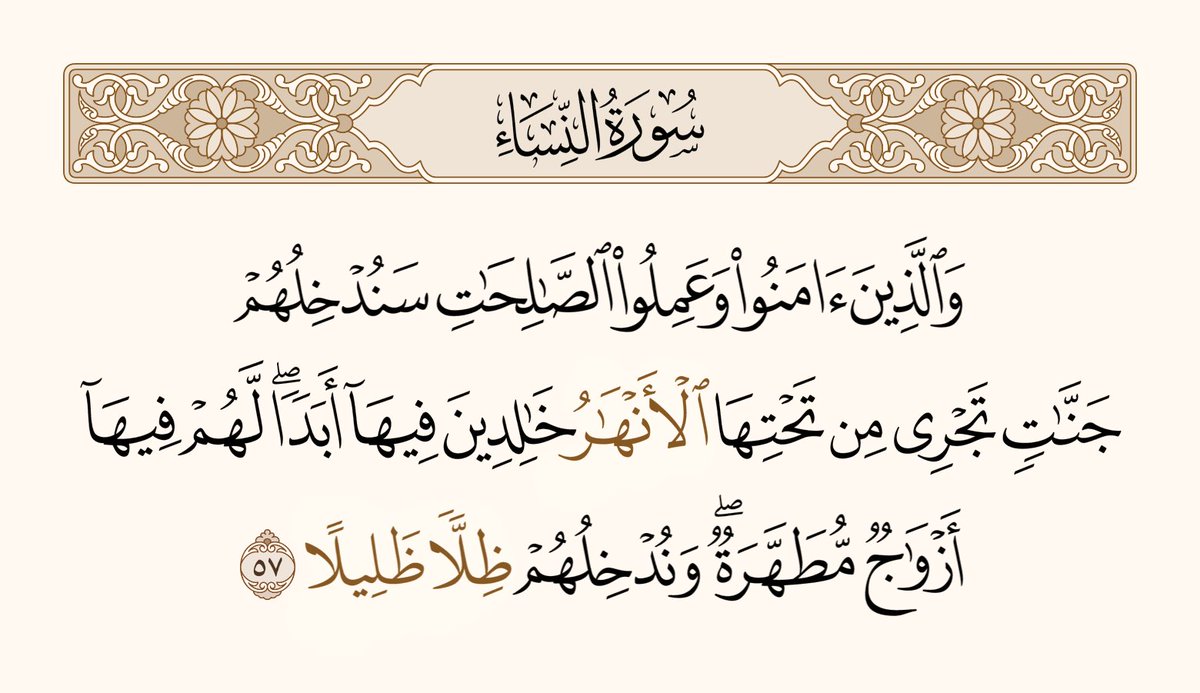 سُورَةُ النِّسَاءِ
وَٱلَّذِينَ ءَامَنُوا۟ وَعَمِلُوا۟ ٱلصَّـٰلِحَـٰتِ سَنُدْخِلُهُمْ
جَنَّـٰتٍ تَجْرِى مِن تَحْتِهَا ٱلْأَنْهَـٰرُ خَـٰلِدِينَ فِيهَآ أَبَدًا ۖ لَّهُمْ فِيهَآ
أَزْوَٰجٌ مُّطَهَّرَةٌ ۖ وَنُدْخِلُهُمْ ظِلًّا ظَلِيلًا ٥٧